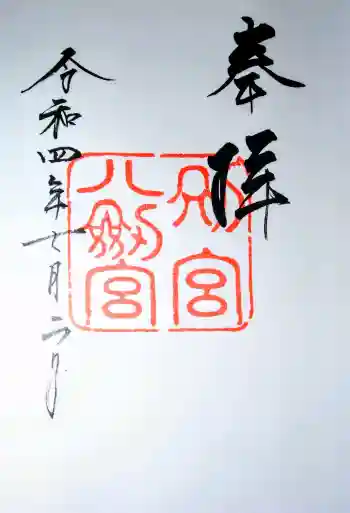 奉拝
別宮
八劔宮
令和四年七月二日